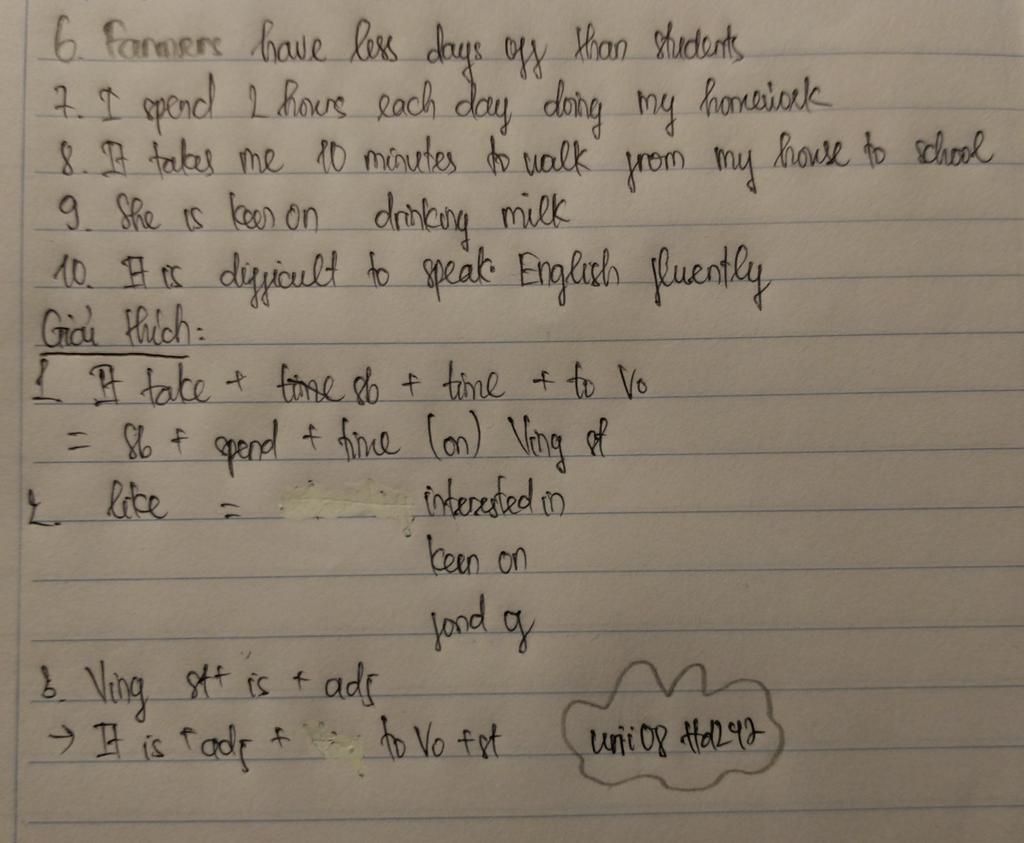 6. Farmers have less days off than students
7. I spend 2 hours each day doing my homework
8. It takes me 10 minutes to walk from my house to school
9. She is keen on drinking milk
10. It is difficult to speak English fluently
Giải thích:
1. It take + time sb + time + to Vo
= Sb + spend + time (on) Ving st
2. like = interested in
keen on
fond of
3. Ving st + is + adj
→ It is + adj + to Vo + st